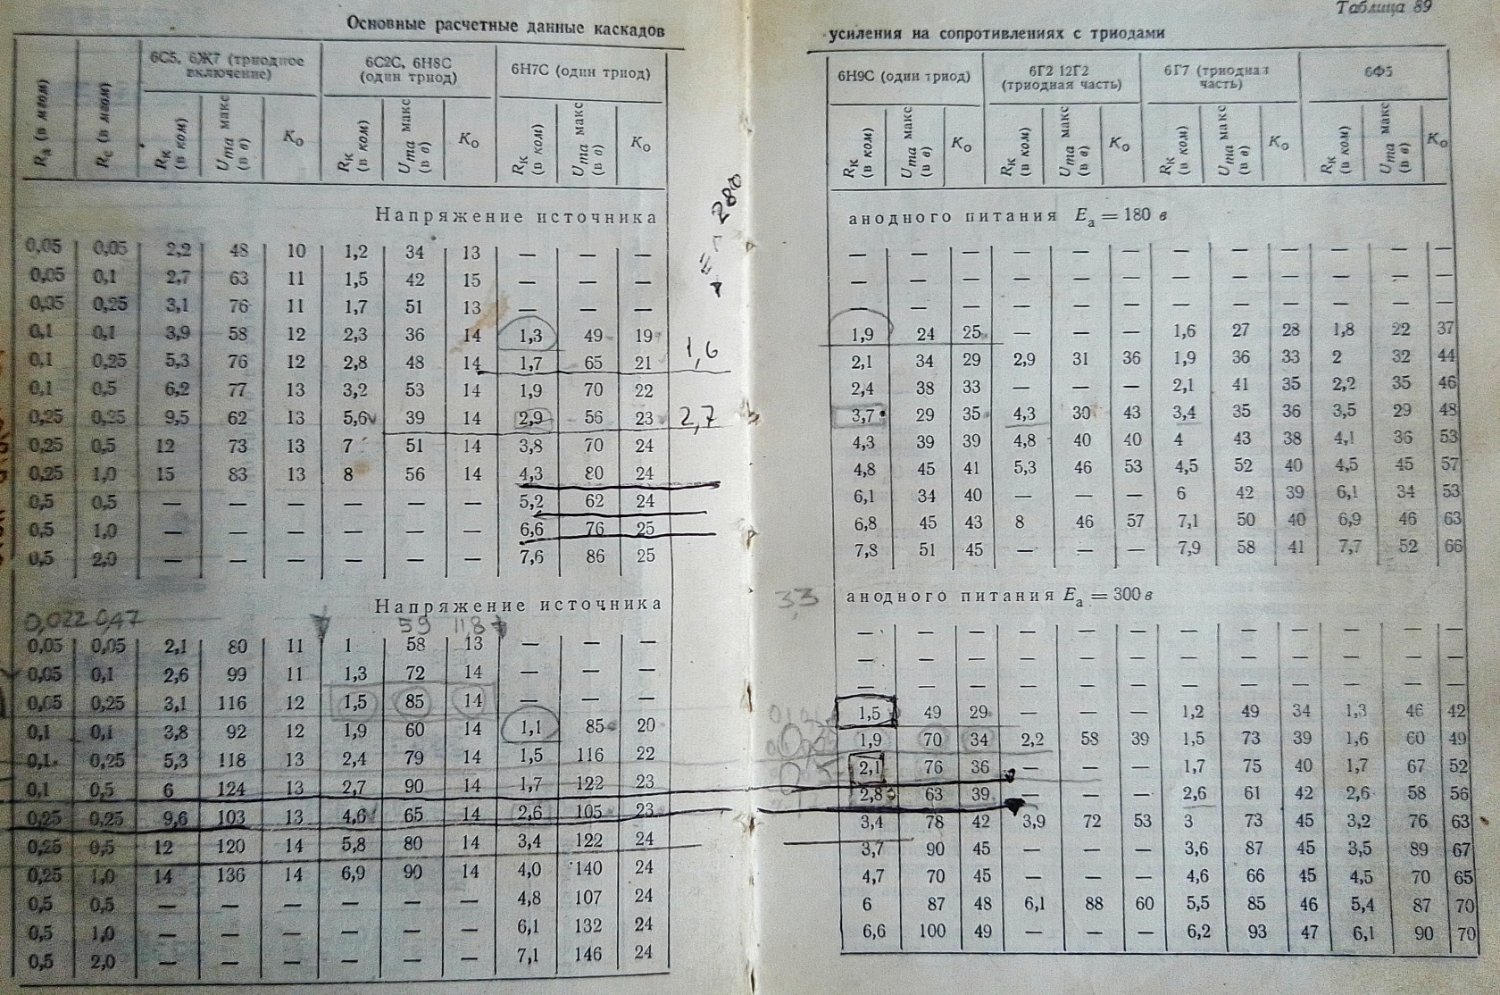 Таблица 89
Основные расчетные данные каскадов усиления на сопротивлениях с триодами
Rа (в мгом) Rс (в мгом) 6С5, 6Ж7 (триодное включение) 6С2С, 6Н8С (один триод) 6Н7С (один триод) 6Н9С (один триод) 6Г2 12Г2 (триодная часть) 6Г7 (триодная часть) 6Ф5
Rк (в ком) Uma макс (в в) Kо Rк (в ком) Uma макс (в в) Kо Rк (в ком) Uma макс (в в) Kо Rк (в ком) Uma макс (в в) Kо Rк (в ком) Uma макс (в в) Kо Rк (в ком) Uma макс (в в) Kо Rк (в ком) Uma макс (в в) Kо
280
Напряжение источника анодного питания Eа = 180 в
0,05 0,05 2,2 48 10 1,2 34 13 — — — — — — — — — — — — — — —
0,05 0,1 2,7 63 11 1,5 42 15 — — — — — — — — — — — — — — —
0,05 0,25 3,1 76 11 1,7 51 13 — — — — — — — — — — — — — — —
0,1 0,1 3,9 58 12 2,3 36 14 1,3 49 19 1,9 24 25 — — — 1,6 27 28 1,8 22 37
0,1 0,25 5,3 76 12 2,8 48 14 1,7 65 21 1,6 2,1 34 29 2,9 31 36 1,9 36 33 2 32 44
0,1 0,5 6,2 77 13 3,2 53 14 1,9 70 22 2,4 38 33 — — — 2,1 41 35 2,2 35 46
0,25 0,25 9,5 62 13 5,6 39 14 2,9 56 23 2,7 3,7 29 35 4,3 30 43 3,4 35 36 3,5 29 48
0,25 0,5 12 73 13 7 51 14 3,8 70 24 4,3 39 39 4,8 40 40 4 43 38 4,1 36 53
0,25 1,0 15 83 13 8 56 14 4,3 80 24 4,8 45 41 5,3 46 53 4,5 52 40 4,5 45 57
0,5 0,5 — — — — — — 5,2 62 24 6,1 34 40 — — — 6 42 39 6,1 34 53
0,5 1,0 — — — — — — 6,6 76 25 6,8 45 43 8 46 57 7,1 50 40 6,9 46 63
0,5 2,0 — — — — — — 7,6 86 25 7,8 51 45 — — — 7,9 58 41 7,7 52 66
Напряжение источника 3,3 анодного питания Eа = 300 в
0,022 0,47 59 118
0,05 0,05 2,1 80 11 1 58 13 — — — — — — — — — — — — — — —
0,05 0,1 2,6 99 11 1,3 72 14 — — — — — — — — — — — — — — —
0,05 0,25 3,1 116 12 1,5 85 14 — — — — — — — — — — — — — — —
0,1 0,1 3,8 92 12 1,9 60 14 1,1 85 20 1,5 49 29 — — — 1,2 49 34 1,3 46 42
0,1 0,25 5,3 118 13 2,4 79 14 1,5 116 22 1,9 70 34 2,2 58 39 1,5 73 39 1,6 60 49
0,1 0,5 6 124 13 2,7 90 14 1,7 122 23 2,1 76 36 — — — 1,7 75 40 1,7 67 52
0,25 0,25 9,6 103 13 4,6 65 14 2,6 105 23 2,8 63 39 — — — 2,6 61 42 2,6 58 56
0,25 0,5 12 120 14 5,8 80 14 3,4 122 24 3,4 78 42 3,9 72 53 3 73 45 3,2 76 63
0,25 1,0 14 136 14 6,9 90 14 4,0 140 24 3,7 90 45 — — — 3,6 87 45 3,5 89 67
0,5 0,5 — — — — — — 4,8 107 24 4,7 70 45 — — — 4,6 66 45 4,5 70 65
0,5 1,0 — — — — — — 6,1 132 24 6 87 48 6,1 88 60 5,5 85 46 5,4 87 70
0,5 2,0 — — — — — — 7,1 146 24 6,6 100 49 — — — 6,2 93 47 6,1 90 70